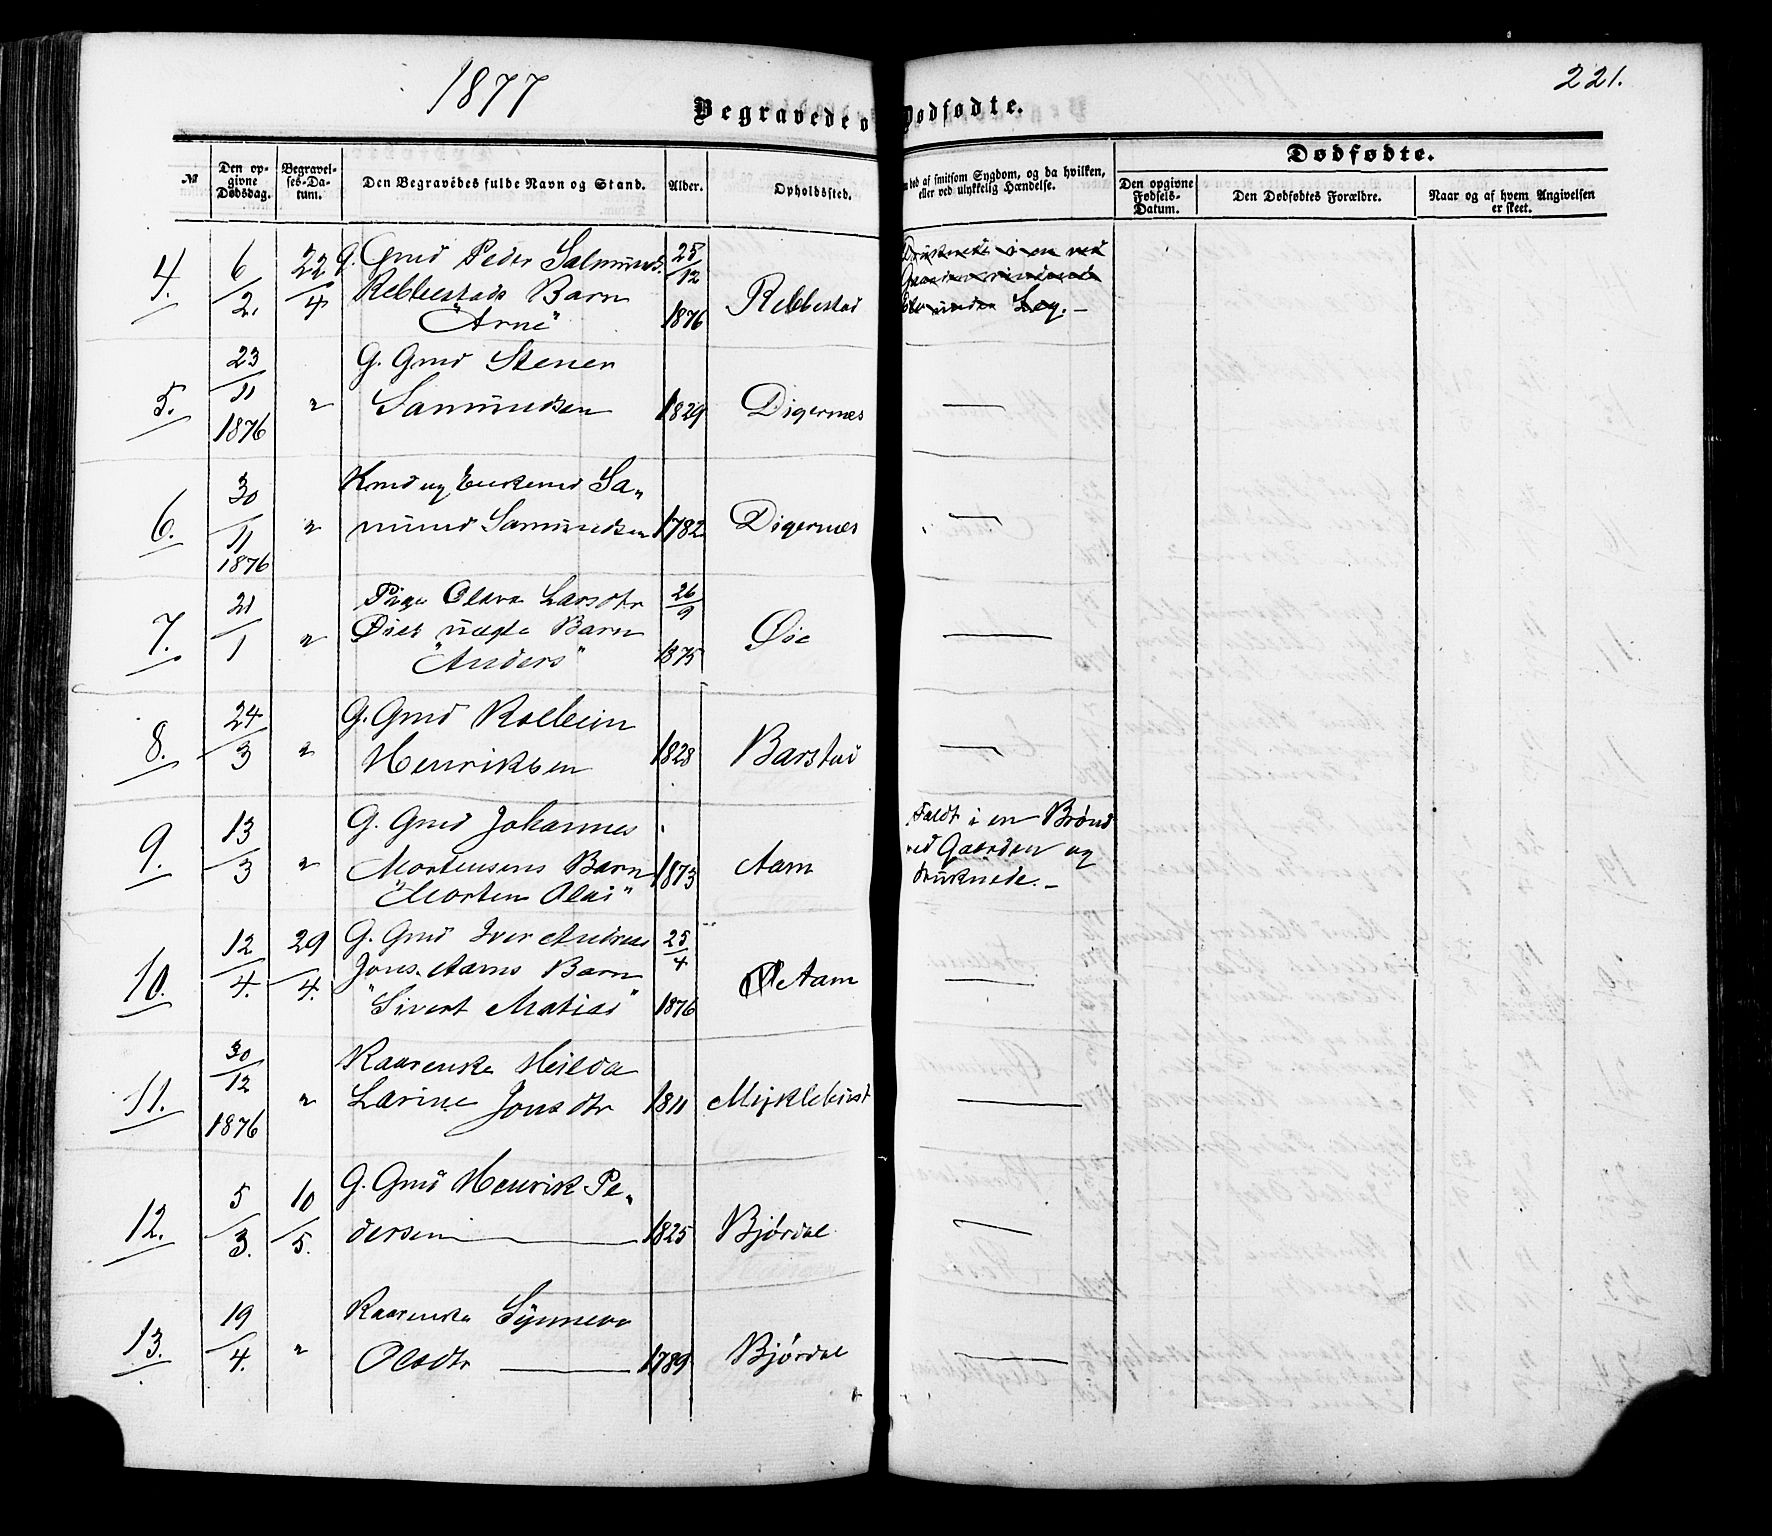 1877
221.
Begravede o
Dødfødte.
Dødfødte.
№
Den op-
givne
Dødsdag.
Begravel-
ses-Da-
tum.
Den Begravedes fulde Navn og Stand.
Alder.
Opholdssted.
ded af smitsom Sygdom, og da hvilken,
eller ved ulykkelig Hændelse.
Den opgivne
Fødsels-
Datum.
Den Dødfødtes Forældre.
Naar og af hvem Angivelsen
er skeet.
4.
6/2.
22/4
G. Gmd Peder Salmunds.
Rebbestads Barn
"Arne"
25/12
1876
Rebbestad
Druknede i en ved
Gaarden rindende
Elv under Leg.
5.
23/11
1876
"
G. Gmd Stener
Samundsen
1829
Digernes
—
6.
30/11
1876
"
Kmd og Enkemd Sa-
mund Samundsen
1782
Digernes
—
7.
21/1
"
Pige Olave Larsdtr
Øies uægte Barn
"Anders"
26/9
1875
Øie
—
8.
24/3
"
G. Gmd Kolbein
Henriksen
1828
Barstad
—
9.
13/3
"
G. Gmd Johannes
Mortensens Barn
"Morten Olai"
1873
Aam
Faldt i en Brønd
ved Gaarden og
druknede.
10.
12/4.
29/4.
G. Gmd Iver Andreas
Jons. Aams Barn
"Sivert Matias"
25/4
1876
Aam
—
11.
30/12
1876
"
Kaarenske Heilda
Larine Jonsdtr
1811
Myklebust
—
12.
5/3.
10/5.
G. Gmd Henrik Pe-
dersen —
1825
Bjørdal
—
13.
19/4.
"
Kaarenske Synneva
Olsdtr —
1789
Bjørdal
—